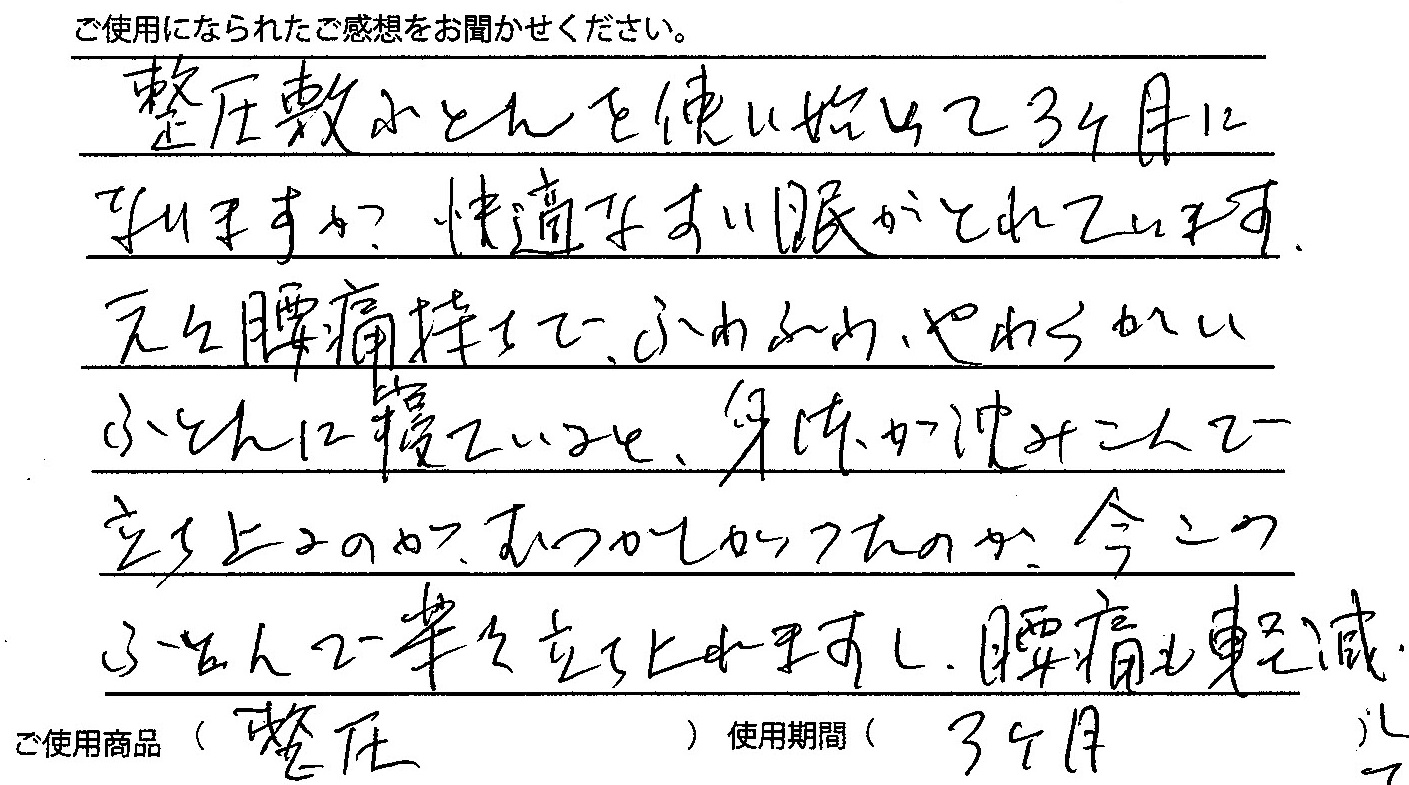 ご使用になられたご感想をお聞かせください。
整圧敷ふとんを使い始めて3ケ月に
なりますが、快適なすい眠がとれています。
元々腰痛持ちで、ふわふわ、やわらかい
ふとんに寝ていると、身体が沈みこんで
立ち上るのが、むつかしかったのが、今この
ふとんで楽々立ち上れますし、腰痛も軽減
して
ご使用商品 ( 整圧 ) 使用期間 ( 3ケ月 )